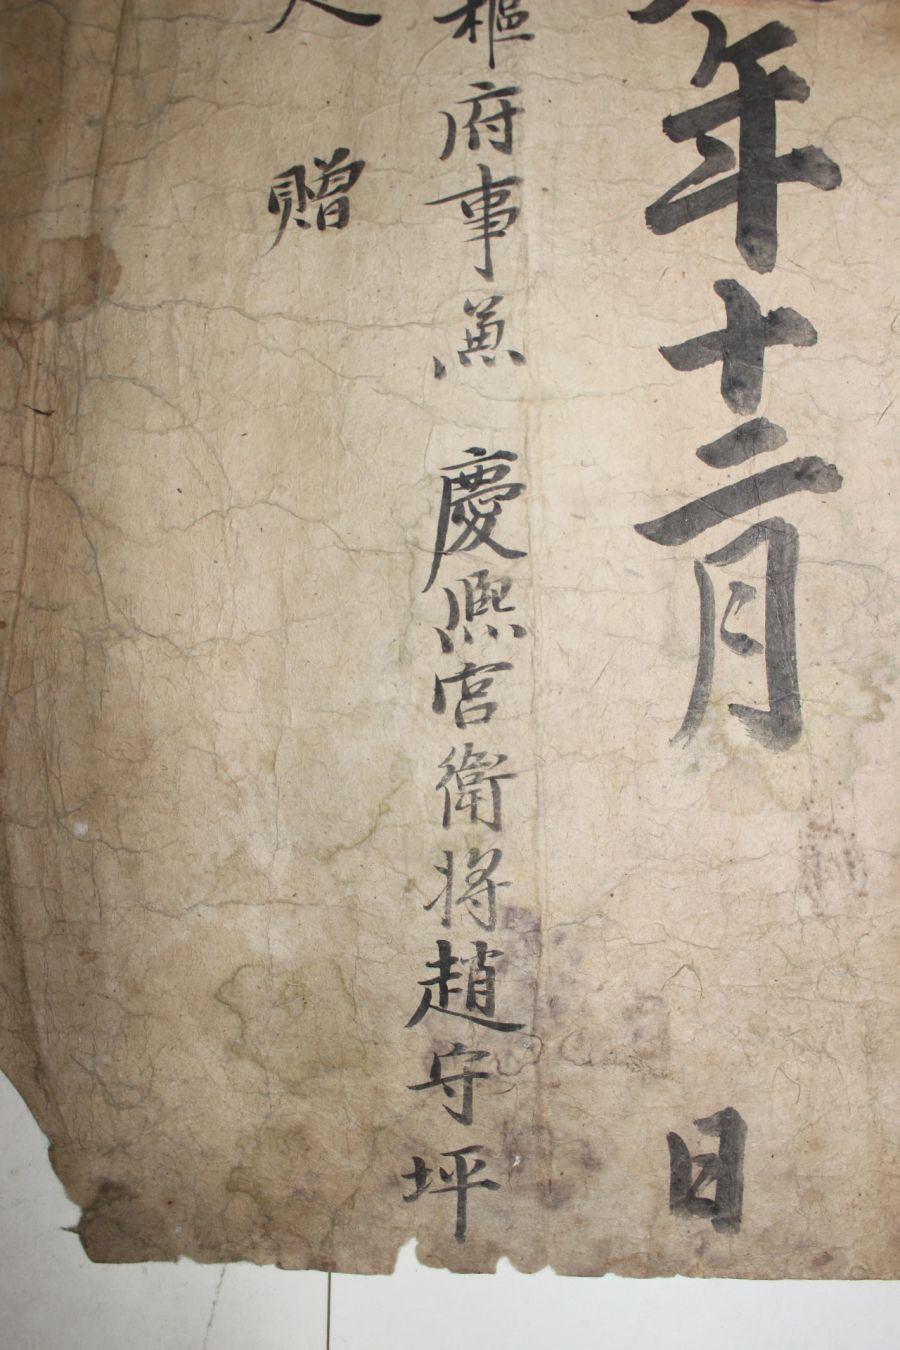 年十二月 日
樞府事兼 慶熙宮衛將趙守坪
贈